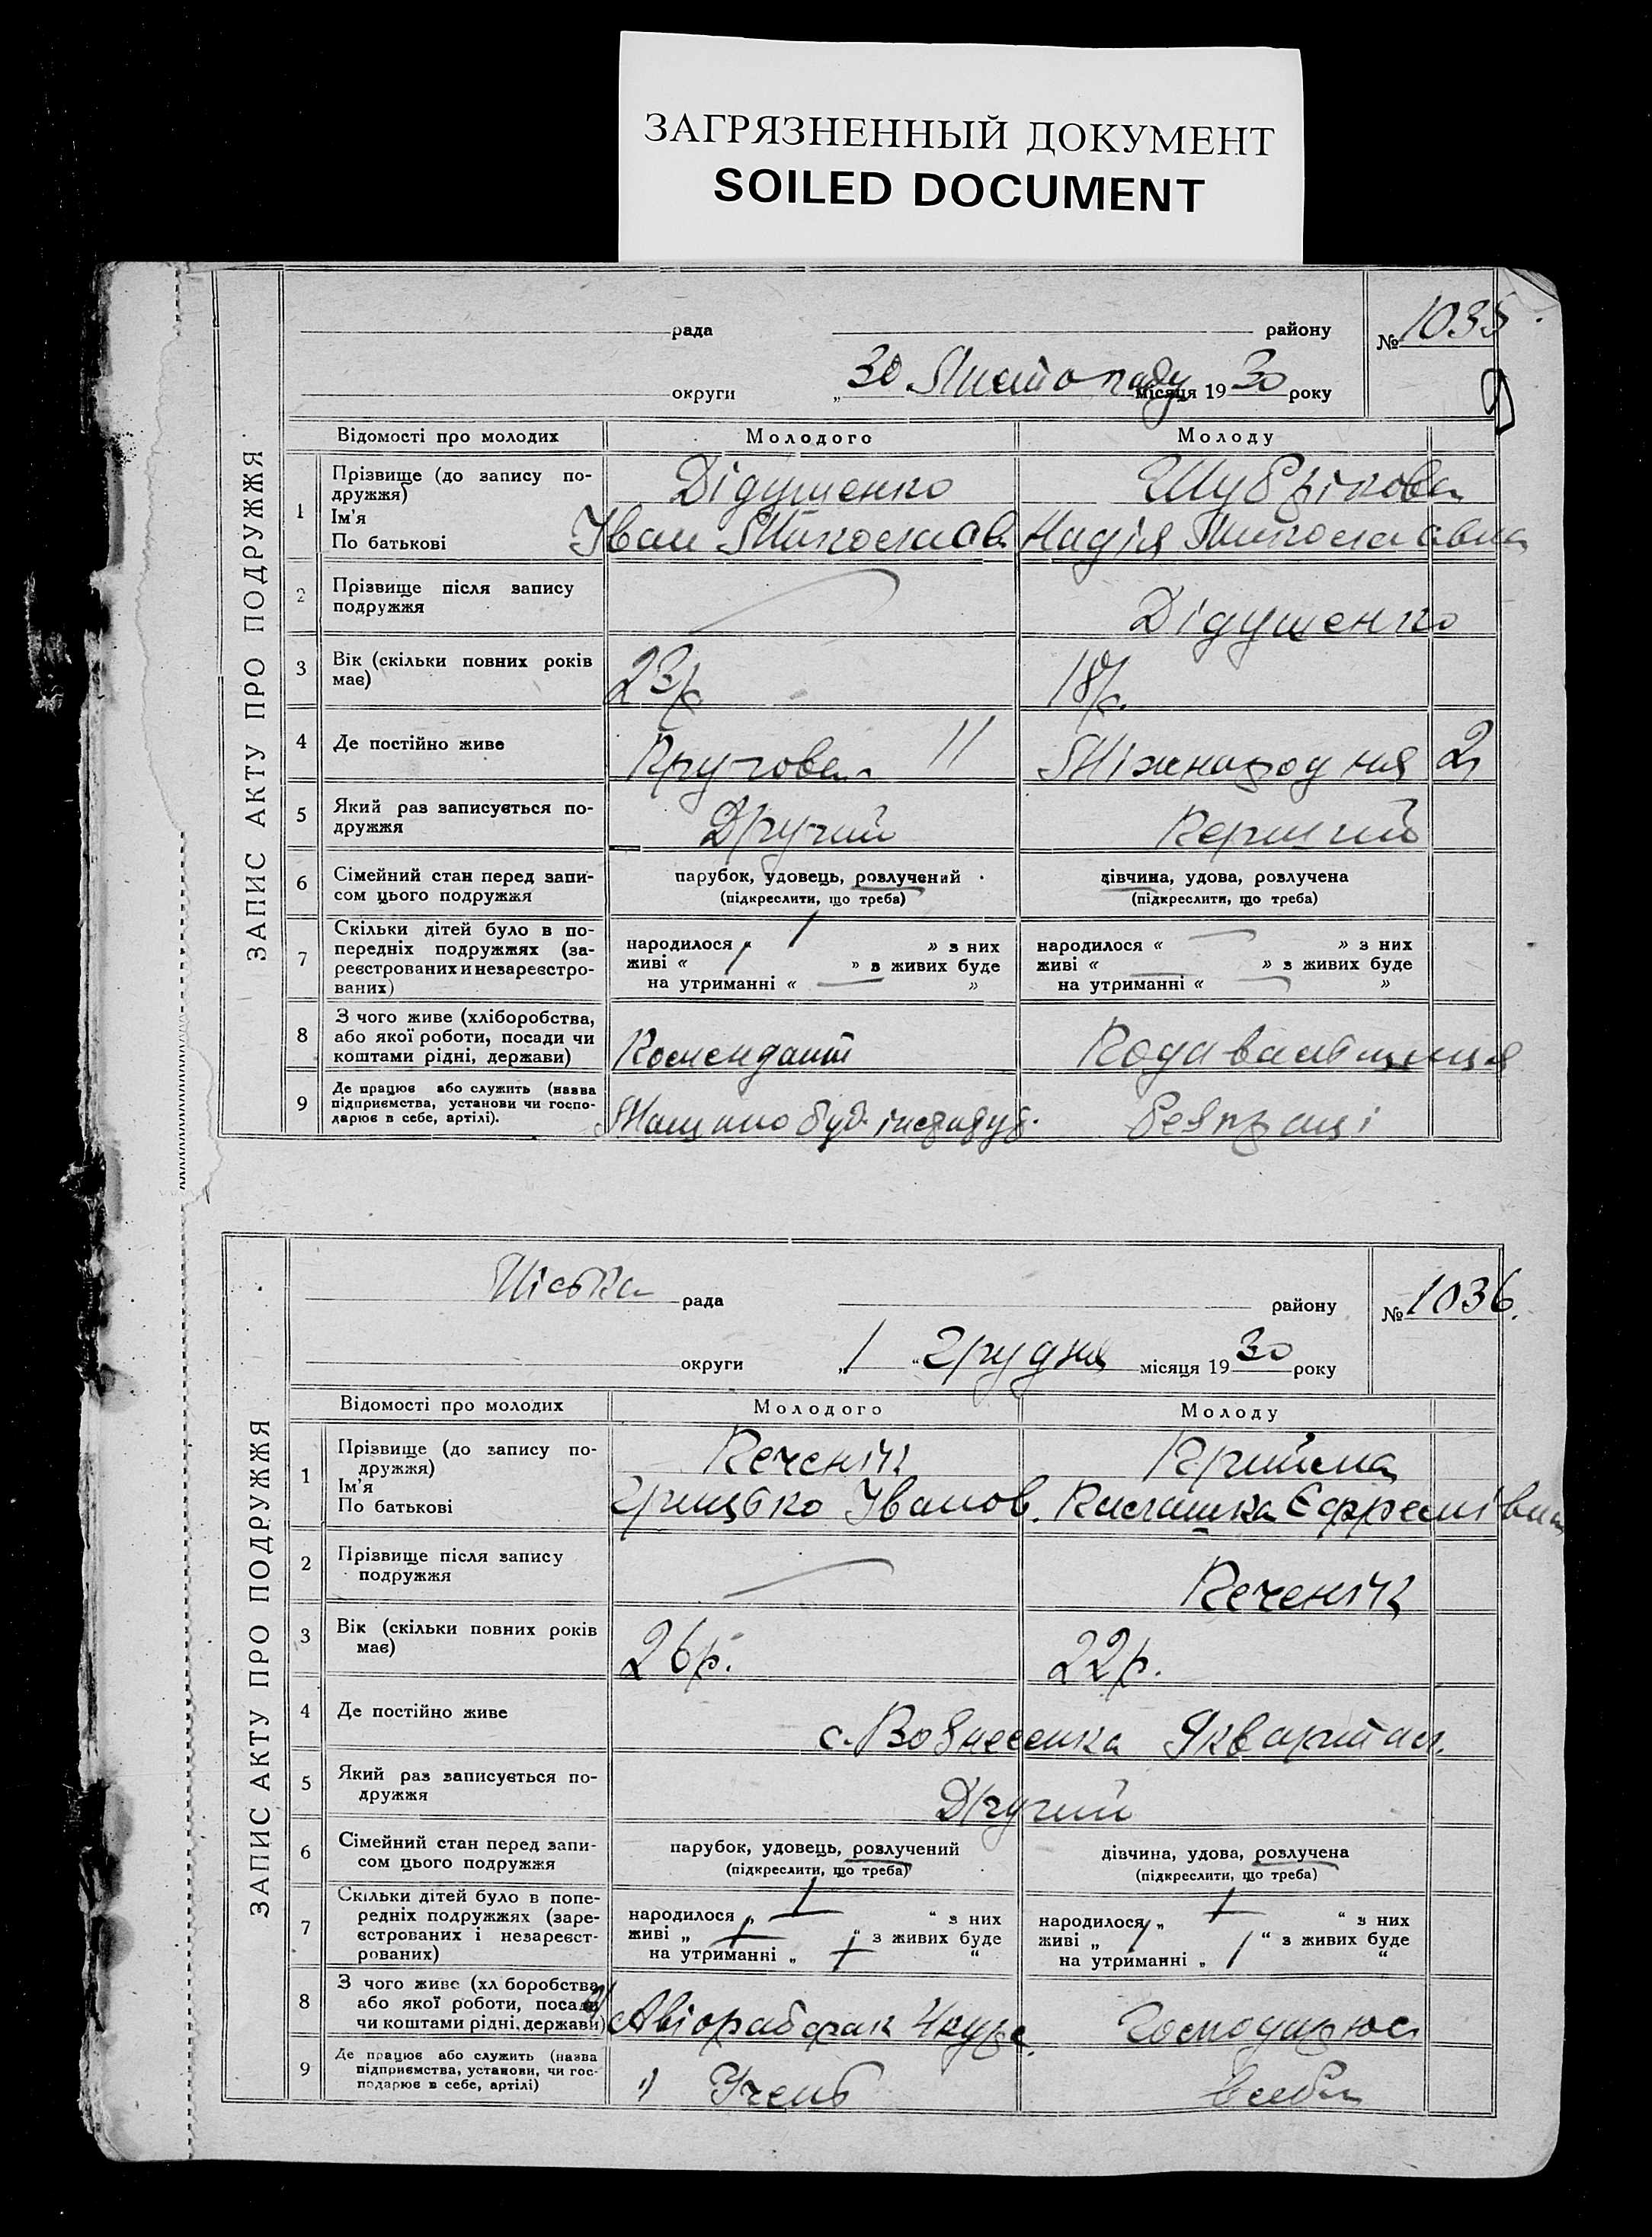 ЗАГРЯЗНЕННЫЙ ДОКУМЕНТ
SOILED DOCUMENT
ЗАПИС АКТУ ПРО ПОДРУЖЖЯ
рада району № 1035
округи „30 Листопаду місяця 1930 року
Відомості про молодих Молодого Молоду
1 Прізвище (до запису по-
дружжя) Дідушенко Шубрікова
Ім'я
По батькові Іван Миколаєв Надія Миколаєвна
2 Прізвище після запису
подружжя Дідушенко
3 Вік (скільки повних років
має) 23р 18р.
4 Де постійно живе Кругова 11 Міжнародня 2
5 Який раз записується по-
дружжя Другий Перший
6 Сімейний стан перед запи-
сом цього подружжя парубок, удовець, розлучений дівчина, удова, розлучена
(підкреслити, що треба) (підкреслити, що треба)
7 Скільки дітей було в по-
передніх подружжях (за-
реєстрованих и незареєстро-
ваних)
народилося « 1 » з них народилося « — » з них
живі « 1 » в живих буде живі « — » з живих буде
на утриманні « — » на утриманні « — »
8 З чого живе (хліборобства,
або якої роботи, посади чи
коштами рідні, держави) Комендант
9 Де працює або служить (назва
підприємства, установи чи госпо-
дарює в себе, артілі). Машино буд. інститут.
ЗАПИС АКТУ ПРО ПОДРУЖЖЯ
Міська рада району № 1036.
округи „1“ грудня місяця 1930 року
Відомості про молодих Молодого Молоду
1 Прізвище (до запису по-
дружжя) Печеніг Прийма
Ім'я
По батькові Грицько Іванов. Килашка Єфремівна
2 Прізвище після запису
подружжя Печеніг
3 Вік (скільки повних років
має) 26р. 22р.
4 Де постійно живе с. Вознесенка 9 квартал.
5 Який раз записується по-
дружжя Другий
6 Сімейний стан перед запи-
сом цього подружжя парубок, удовець, розлучений дівчина, удова, розлучена
(підкреслити, що треба) (підкреслити, що треба)
7 Скільки дітей було в попе-
редніх подружжях (заре-
єстрованих і незареєст-
рованих)
народилося „ 1 “ з них народилося „ 1 “ з них
живі „ 1 “ з живих буде живі „ 1 “ з живих буде
на утриманні „ 1 “ на утриманні „ 1 “
8 З чого живе (хл боробства,
або якої роботи, посади
чи коштами рідні, держави) Авіорабфак 4 курс Господарює
9 Де працює або служить (назва
підприємства, установи, чи гос-
подарює в себе, артілі) " Учень в себе